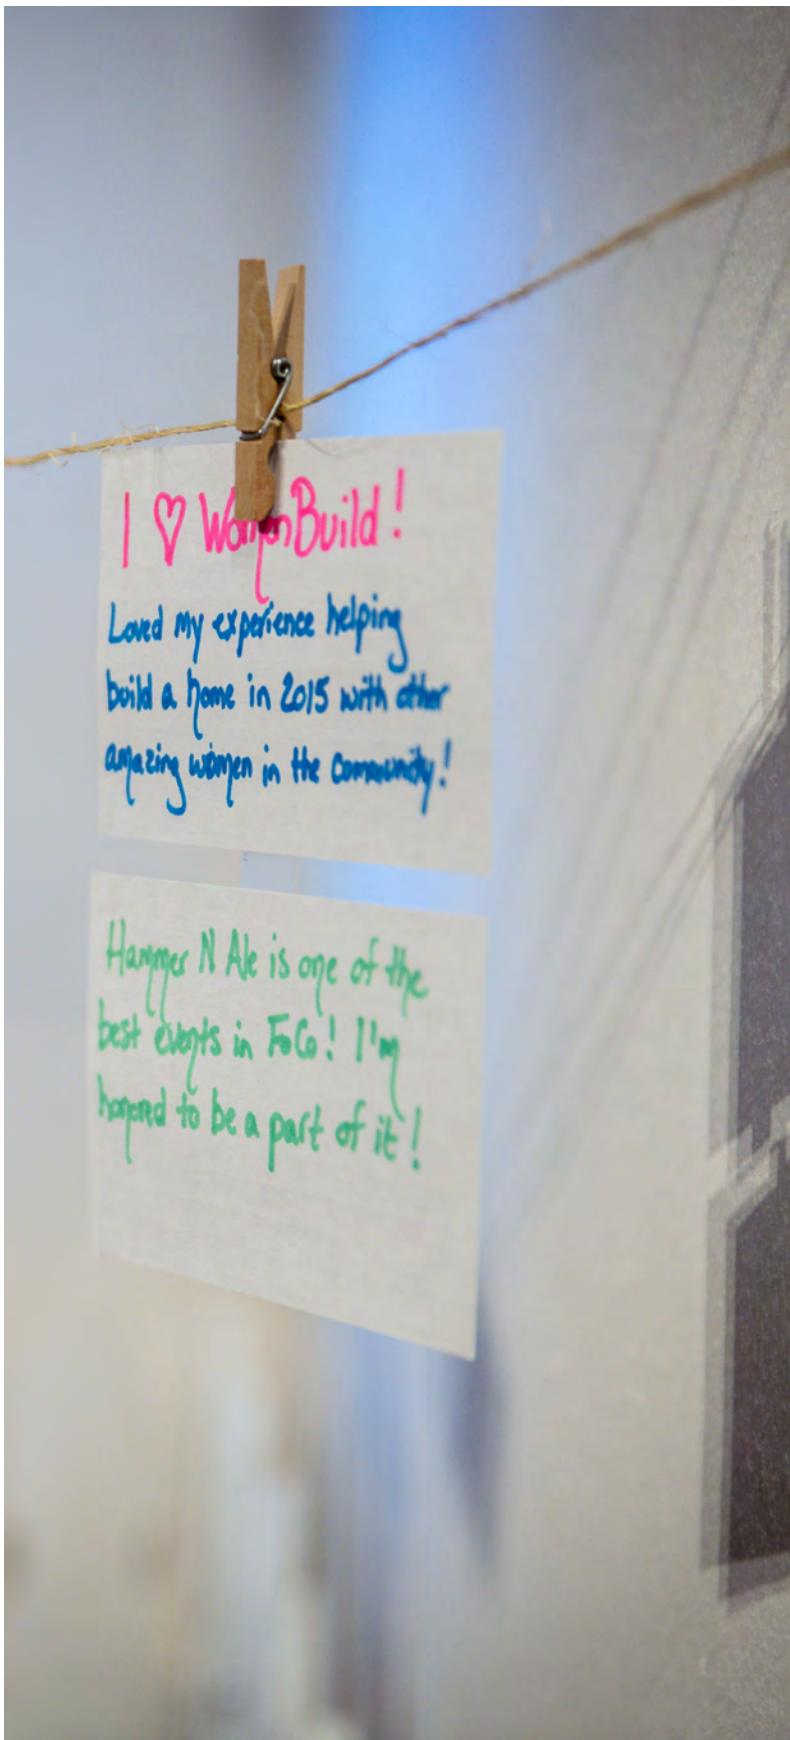 I ♡ Women Build!
Loved my experience helping
build a home in 2015 with other
amazing women in the community!
Hammer N Ale is one of the
best events in FoCo! I'm
honored to be a part of it!